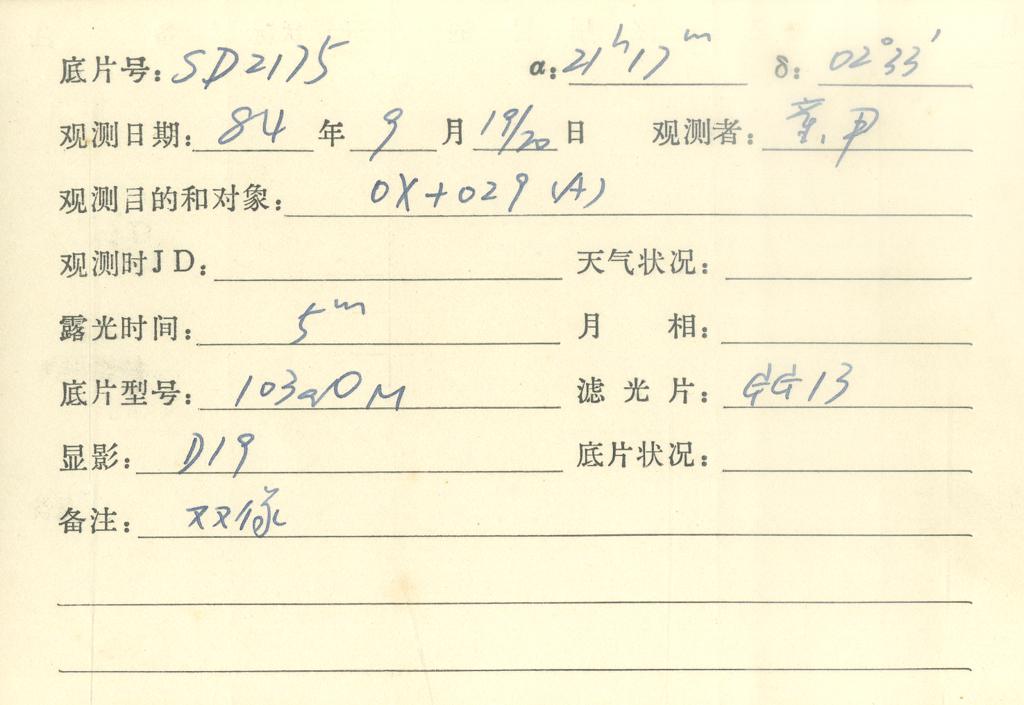 底片号: SD2175 α: 21ʰ17ᵐ δ: 02°33′
观测日期: 84 年 9 月 19/20 日 观测者: 董、尹
观测目的和对象: OX+029 (A)
观测时JD: 天气状况:
露光时间: 5ᵐ 月 相:
底片型号: 103aO M 滤 光 片: GG13
显影: D19 底片状况:
备注: 双像